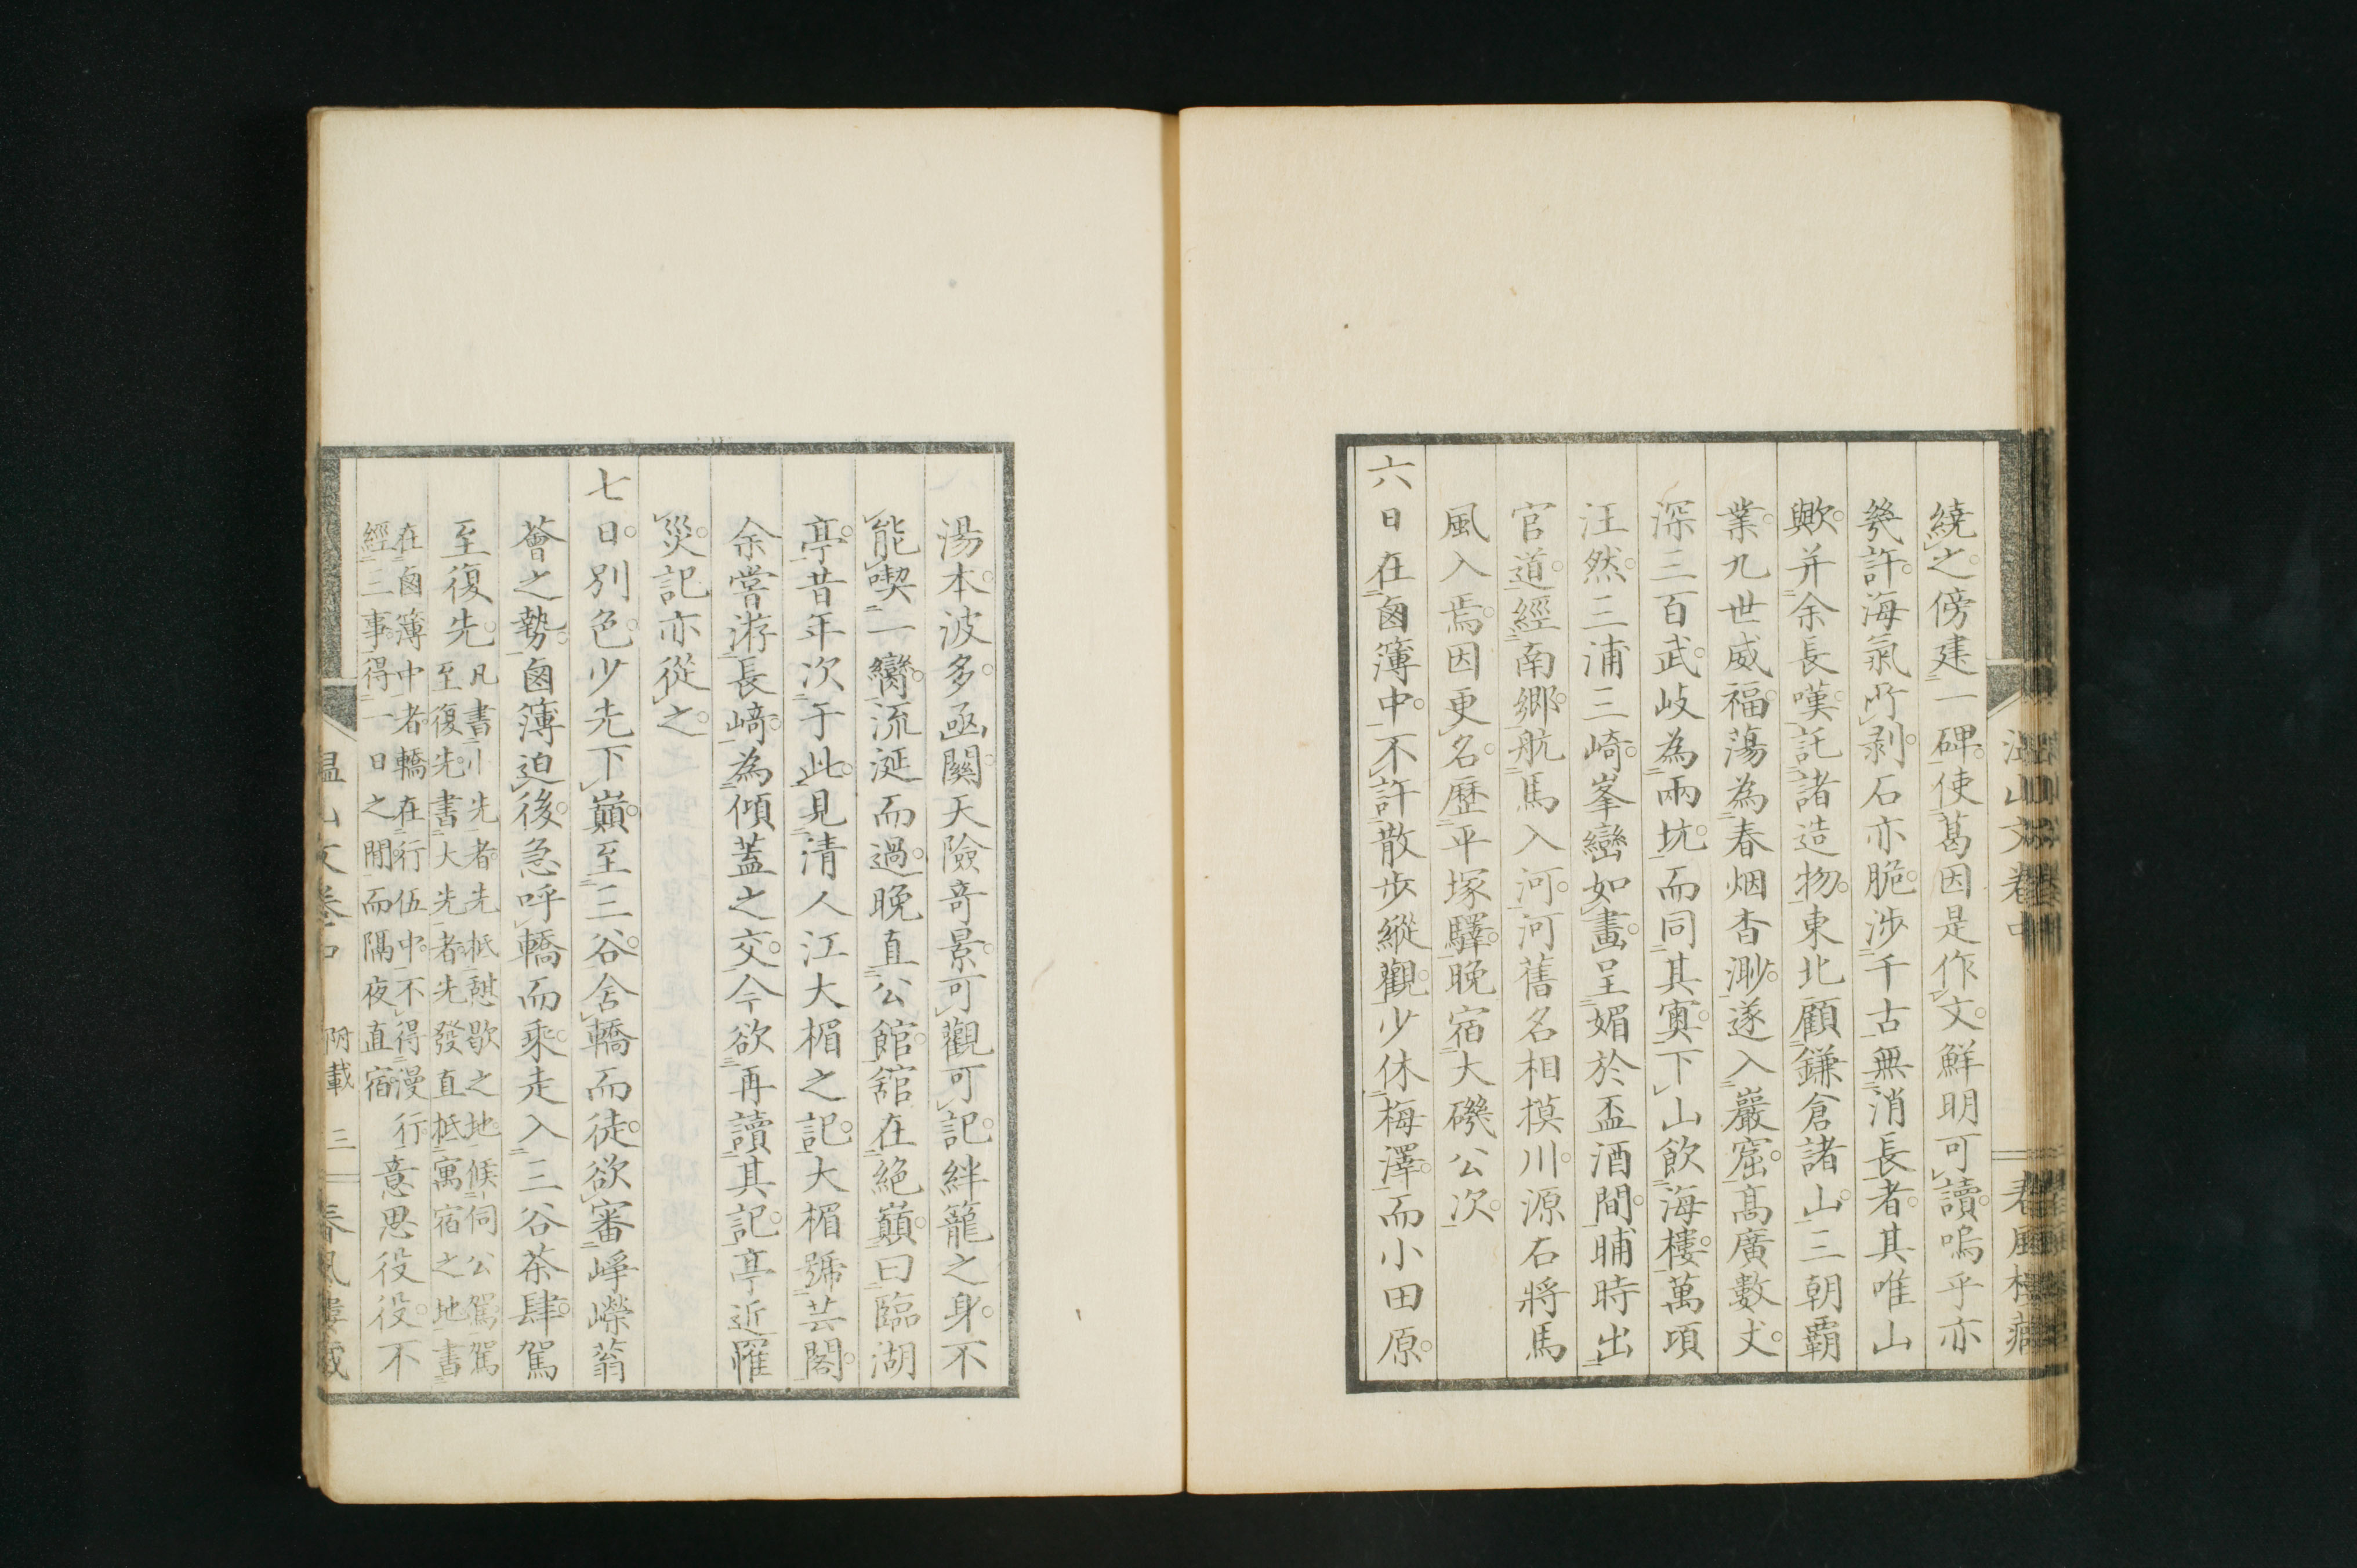 繞之。傍建一碑。使葛因是作文。鮮明可讀。嗚乎亦
幾許。海氣所剥。石亦脆。渉千古無消長者。其唯山
歟。并余長嘆。託諸造物。東北顧鎌倉諸山。三朝覇
業。九世威福。蕩為春烟杳渺。遂入巖窟。高廣數丈。
深三百武。岐為兩坑。而同其奥。下山飲海樓。萬頃
汪然。三浦三崎。峯巒如畫。呈媚於盃酒間。晡時出
官道。經南郷。航馬入河。河舊名相摸川。源右將馬
風入焉。因更名。歴平塚驛。晩宿大磯公次。
六日在鹵簿中。不許散歩縱觀。少休梅澤。而小田原。
湯本。波多。亟關。天險竒景。可觀可記。絆籠之身。不
能喫一臠。流涎而過。晩直公館。舘在絶巔。曰臨湖
亭。昔年次于此。見清人江大楣之記。大楣號芸閣。
余嘗游長﨑。為傾蓋之交。今欲再讀其記。亭近罹
災。記亦從之。
七日。別色。少先下巔。至三谷。舍轎而徒。欲審崢嶸蓊
薈之勢。鹵簿迫後。急呼轎而乘。走入三谷茶肆。駕
至復先。
凡書少先者。先抵憇歇之地。候伺公駕。駕
至復先。書大先者。先發直抵寓宿之地。書
在鹵簿中者。轎在行伍中。不得漫行。
經三事。得一日之間。而隔夜直宿。
意思役役。不
温山文卷中
附載
三
春風樓藏